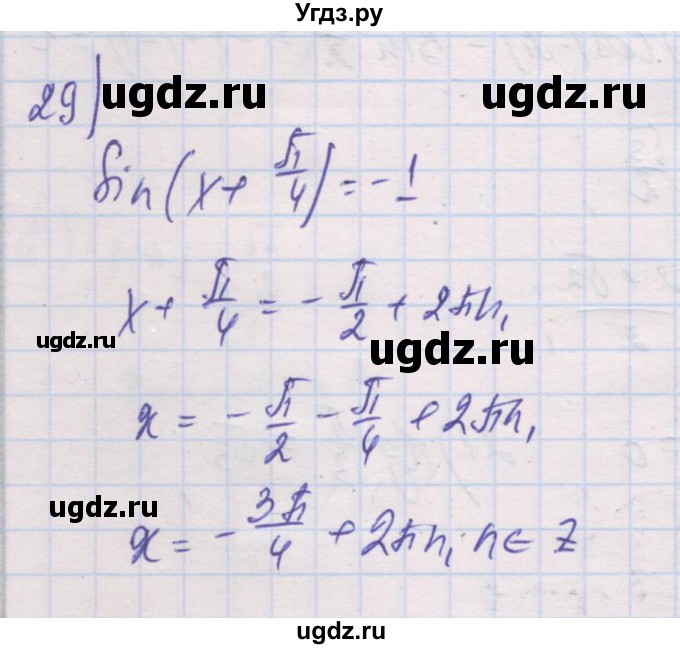 Угдз.ру
29)
ugdz.ru ugdz.ru
sin(x + π/4) = -1
x + π/4 = - π/2 + 2πn,
ugdz.ru ugdz.ru
x = - π/2 - π/4 + 2πn,
ugdz.ru ugdz.ru
x = - 3π/4 + 2πn, n ∈ Z
ugdz.ru